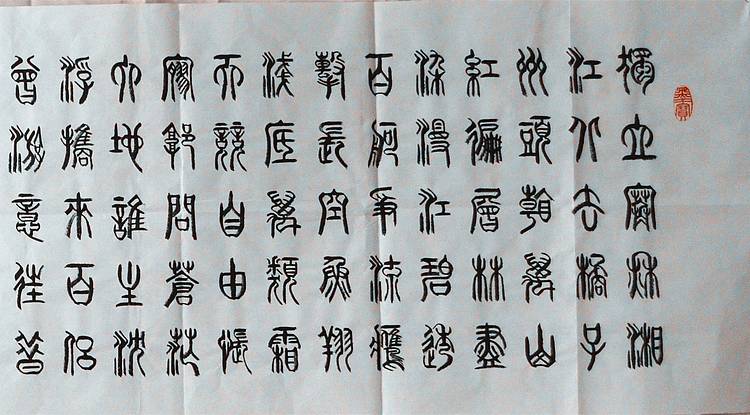 獨立寒秋湘
江北去橘子
州頭看萬山
紅遍層林盡
染漫江碧透
百舸爭流鷹
擊長空魚翔
淺底萬類霜
天競自由悵
寥廓問蒼茫
大地誰主沈
浮攜來百侶
曾游意往昔